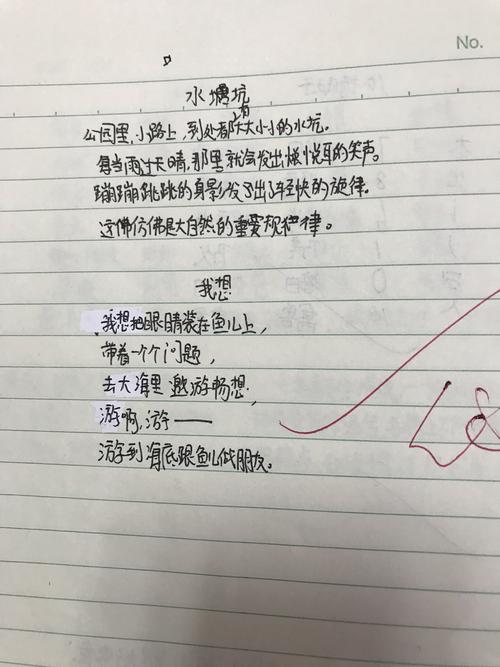 No.
水塘坑
公园里,小路上,到处都有大大小小的水坑。
每当雨过天晴,那里就会发出愉悦耳的笑声。
蹦蹦跳跳的身影发了出了轻快的旋律。
这佛仿佛是大自然的重要规律。
我想
我想把眼睛装在鱼儿上,
带着一个个问题,
去大海里遨游畅想,
游啊,游——
游到海底跟鱼儿做朋友。